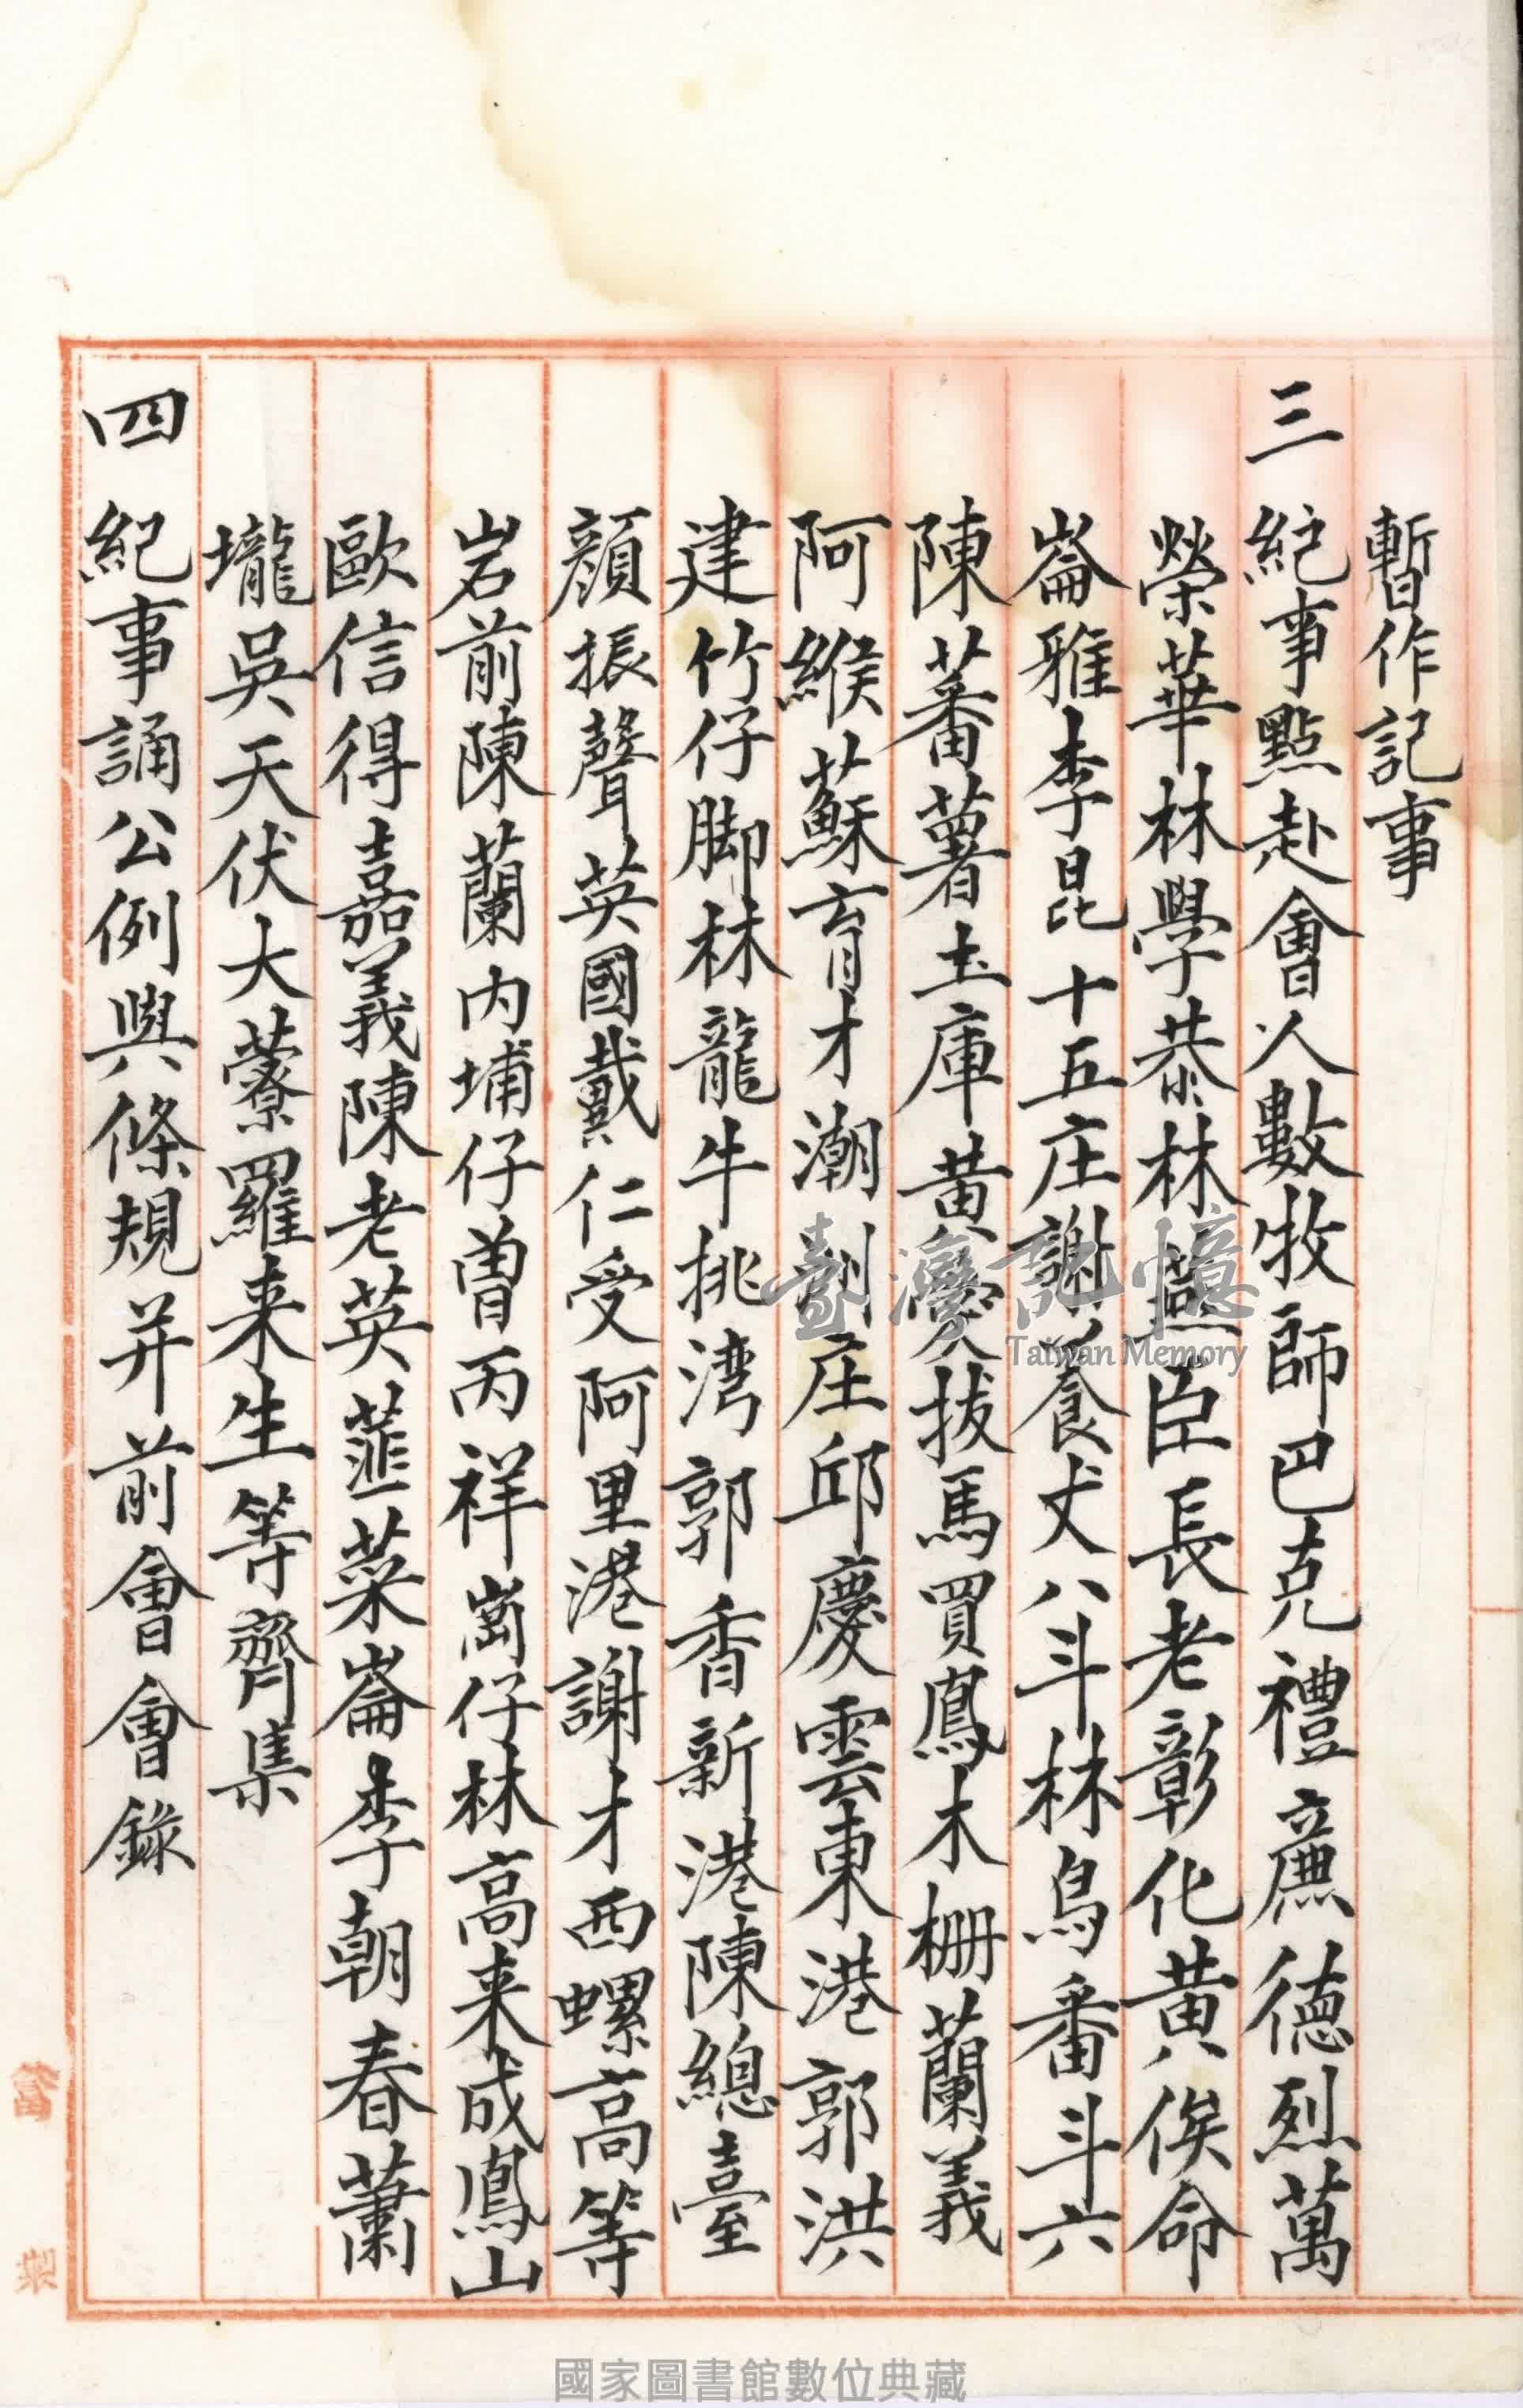 暫作記事
三 紀事點赴會人數牧師巴克禮廉德烈萬
榮華林學恭林燕臣長老彰化黃俟命
崙雅李昆十五庄謝養丈八斗林烏番斗六
陳蕃薯土庫黃愛拔馬買鳳木柵蘭義
阿緱蘇育才潮州庄邱慶雲東港郭洪
建竹仔脚林龍牛挑湾郭香新港陳總臺
顏振聲英國戴仁受阿里港謝才西螺高等
岩前陳蘭內埔仔曾丙祥崗仔林高来成鳳山
歐信得嘉義陳老英韮菜崙李朝春蕭
壠吳天伏大藔羅来生等齊集
四 紀事誦公例與條規并前會會錄
臺灣記憶
Taiwan Memory
國家圖書館數位典藏